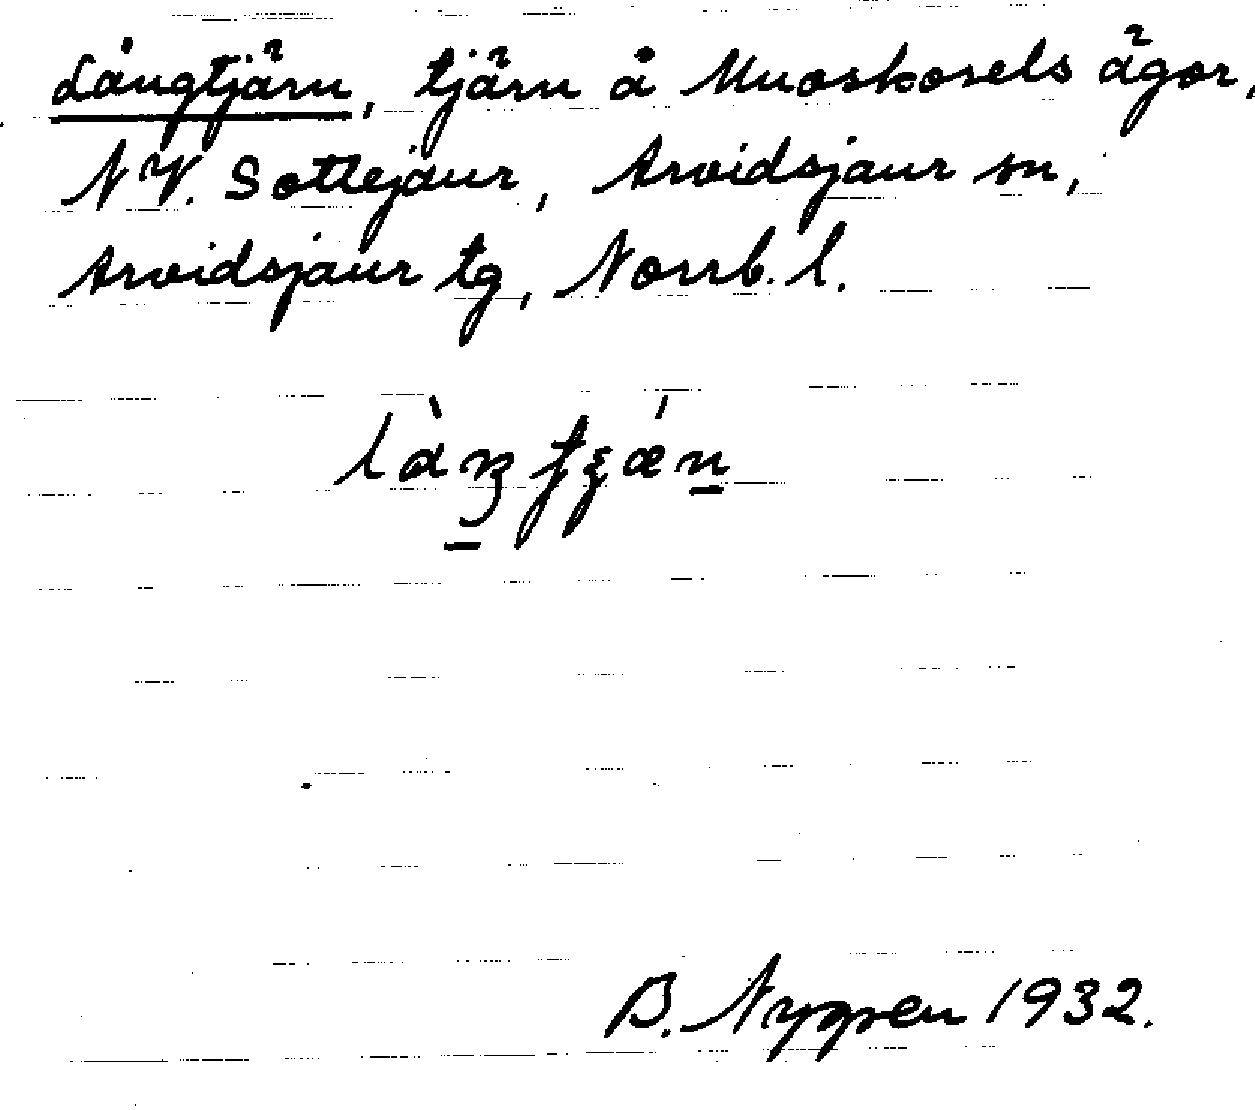 Långtjärn, tjärn å Muoskosels ägor,
NV. Sottejaur, Arvidsjaur sn,
Arvidsjaur tg, Norrb. l.
B. Nygren 1932.